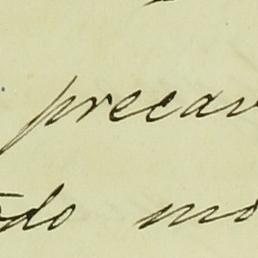 precav
do mo